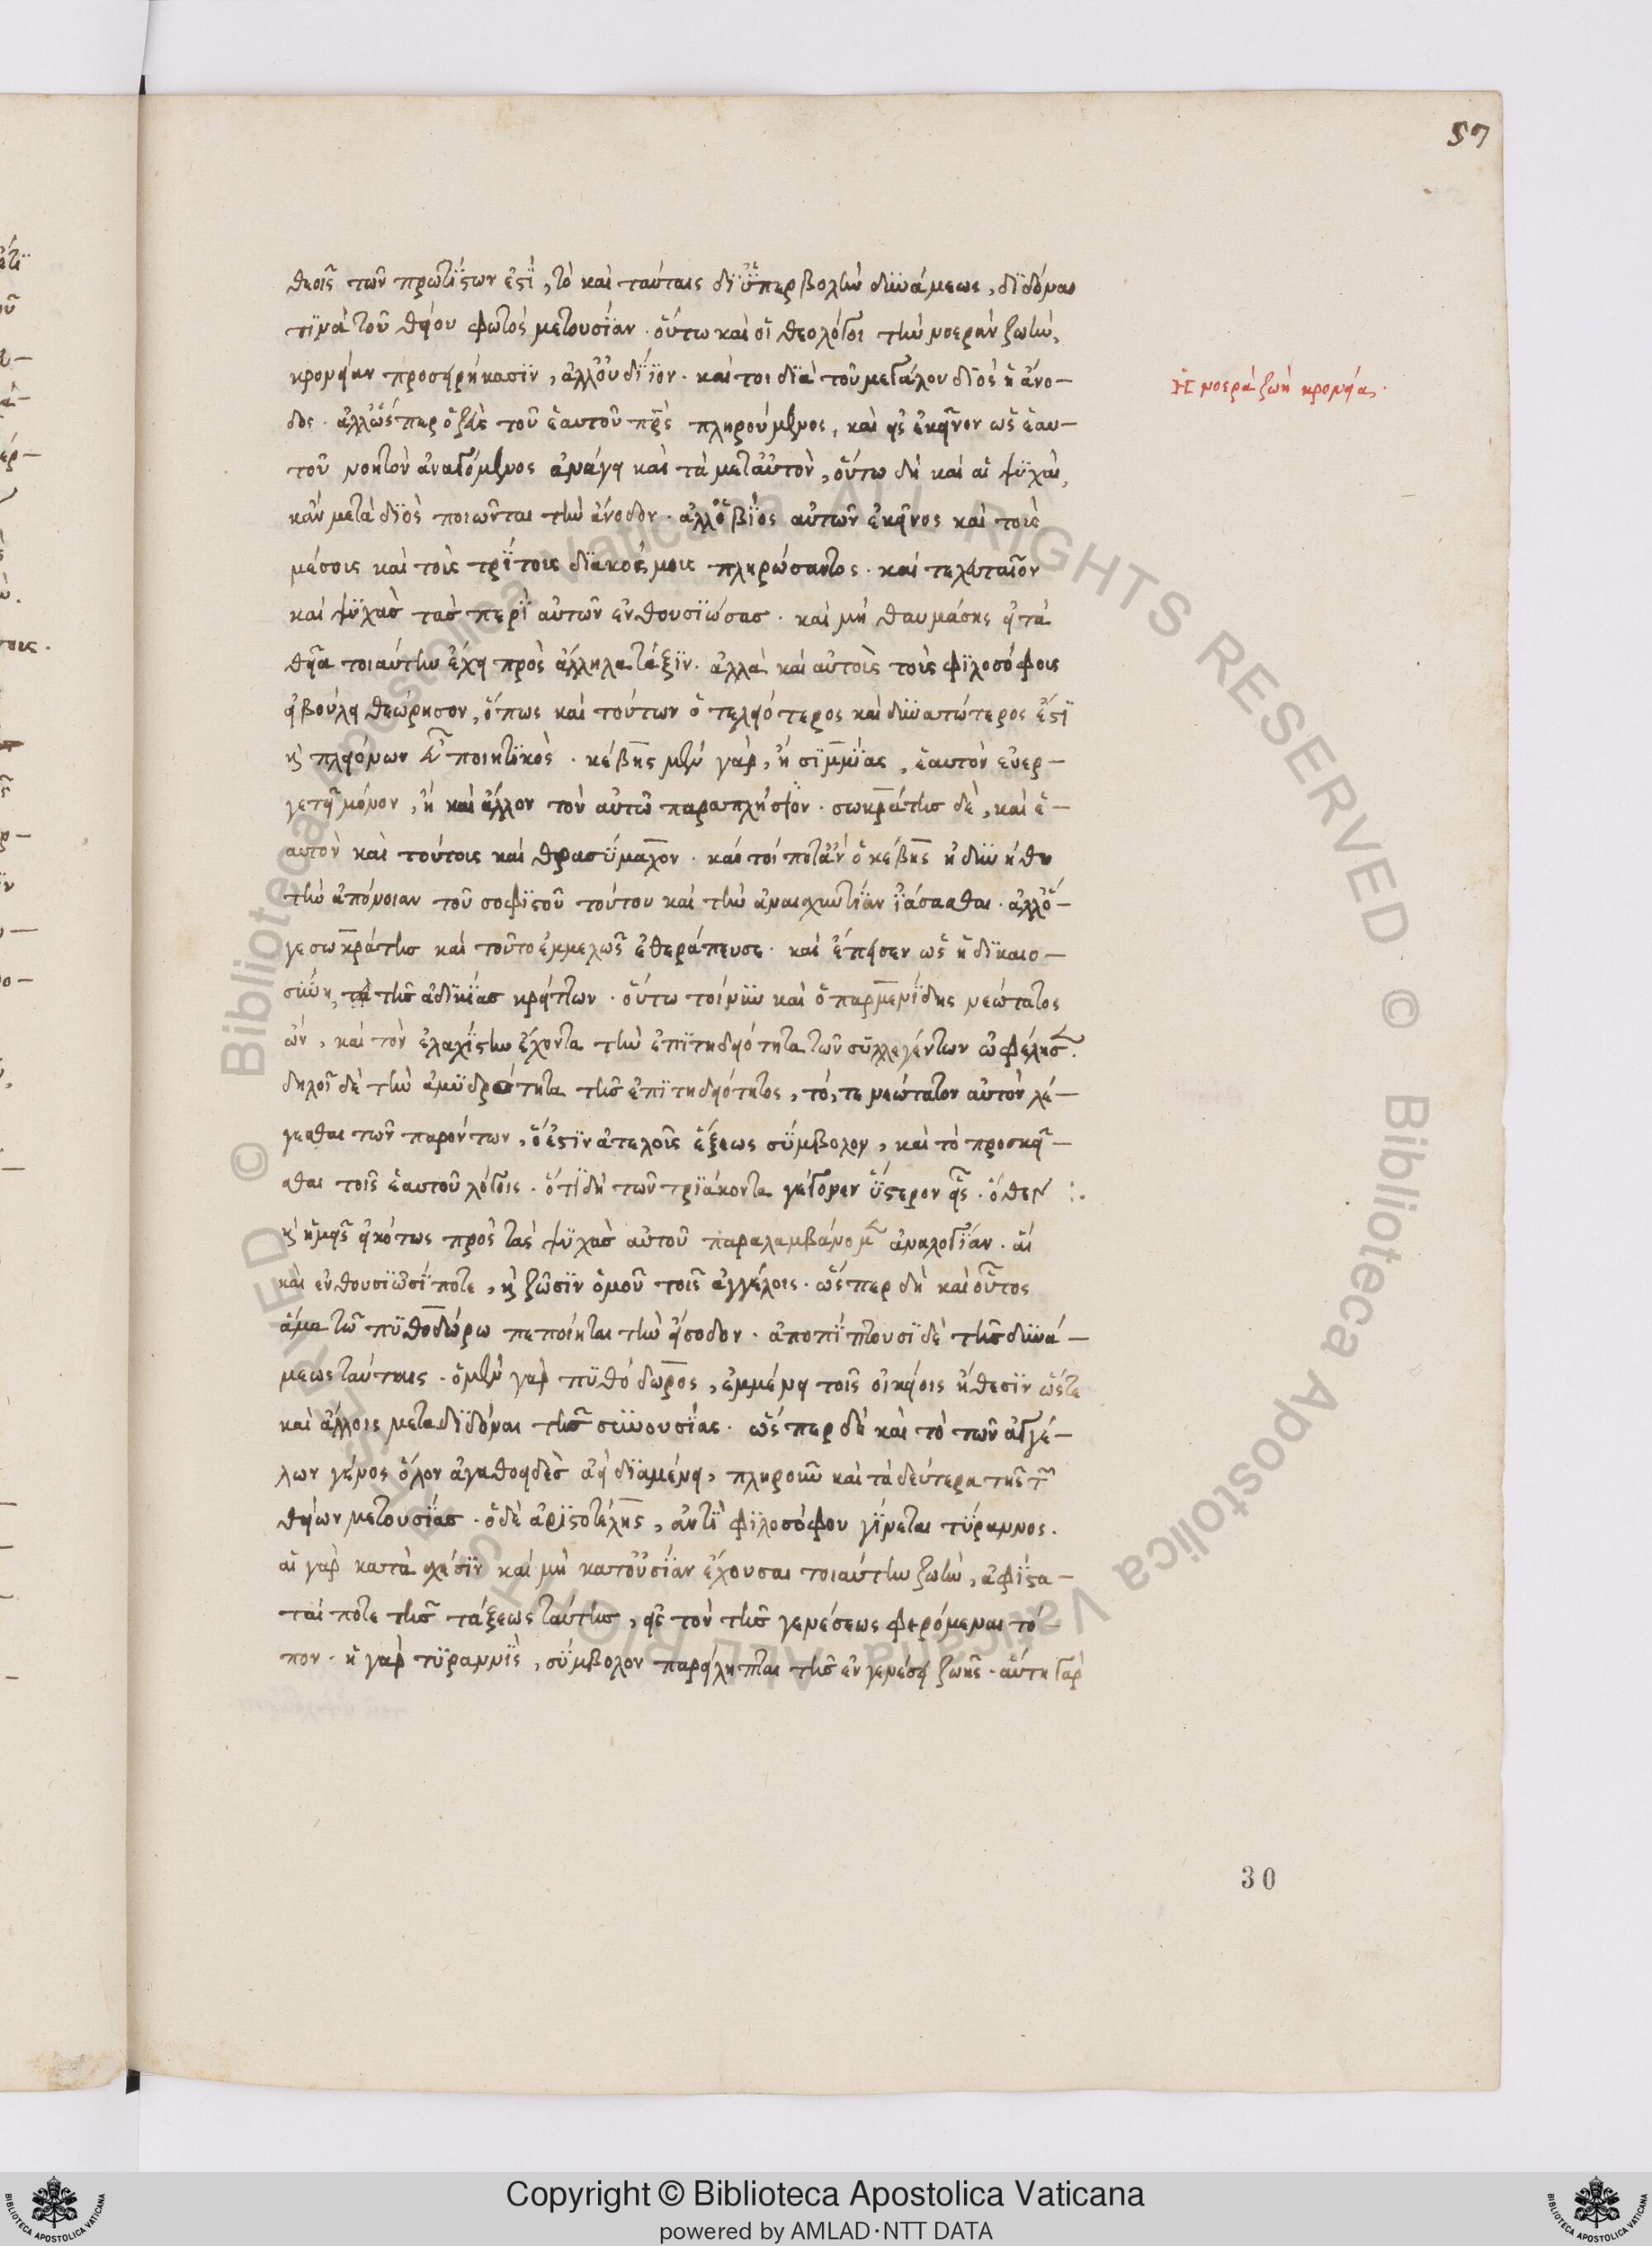 57
θεοῖς τῶν πρωτίστων ἐστὶ, τὸ καὶ ταύταις δι' ὑπερβολὴν δυνάμεως, διδόναι
τινὰ τοῦ θείου φωτὸς μετουσίαν. οὕτω καὶ οἱ θεολόγοι τὴν νοερὰν ζωὴν,
κρονείαν προσειρήκασιν, ἀλλ' οὐ δίϊον. καί τοι διὰ τοῦ μεγάλου διὸς ἡ ἄνο-
δος. ἀλλ' ὥσπερ ὁ ζεὺς τοῦ ἑαυτοῦ πρς πληρούμενος, καὶ εἰς ἐκεῖνον ὡς ἑαυ-
τοῦ νοητὸν ἀναγόμενος ἀνάγει καὶ τὰ μετ' αὐτὸν, οὕτω δὴ καὶ αἱ ψυχαὶ,
κἂν μετὰ διὸς ποιῶνται τὴν ἄνοδον. ἀλλ' ὁ βίος αὐτῶν ἐκεῖνος καὶ τοὺς
μέσοις καὶ τοὺς τρίτοις διακόσμοις πληρώσαντος. καὶ τελευταῖον
καὶ ψυχὰς τὰς περὶ αὐτῶν ἐνθουσιώσας. καὶ μὴ θαυμάσῃς εἰ τὰ
θεῖα τοιαύτην ἔχει πρὸς ἄλληλα τάξιν. ἀλλὰ καὶ αὐτοῖς τοῖς φιλοσόφοις
εἰ βούλει θεώρησον, ὅπως καὶ τούτων ὁ τελειότερος καὶ δυνατώτερος ἐστὶ
κ πλειόνων εὖ ποιητικός. κέβης μὲν γὰρ, ἢ σιμμίας, ἑαυτὸν εὐερ-
γετεῖ μόνον, ἢ καὶ ἄλλον τὸν αὐτῷ παραπλήσιον. σωκράτης δὲ, καὶ ἑ-
αυτὸν καὶ τούτοις καὶ θρασύμαχον. καί τοι πότ' ἂν ὁ κέβης ἠδυνήθη
τὴν ἀπόνοιαν τοῦ σοφιστοῦ τούτου καὶ τὴν ἀναισχυντίαν ἰάσασθαι. ἀλλ' ὅ-
γε σωκράτης καὶ τοῦτο ἐμμελῶς ἐθεράπευσε. καὶ ἔπεισεν ὡς ἡ δικαιο-
σύνη, τὰ τῆς ἀδικίας κρείττων. οὕτω τοίνυν καὶ ὁ παρμενίδης νεώτατος
ὢν, καὶ τὸν ἐλαχίστην ἔχοντα τὴν ἐπιτηδειότητα τῶν συλλεγέντων ὠφέλησ.
δηλοῖ δὲ τὴν ἀμυδρότητα τῆς ἐπιτηδειότητος, τό, τε νεώτατον αὐτὸν λέ-
γεσθαι τῶν παρόντων, ὅ ἐστιν ἀτελοῦς ἕξεως σύμβολον, καὶ τὸ προσκεῖ-
σθαι τοῖς ἑαυτοῦ λόγοις. ὅτι δὴ τῶν τριάκοντα γέγονεν ὕστερον εἷς. ὅθεν :.
κ ἡμεῖς εἰκότως πρὸς τὰς ψυχὰς αὐτοῦ παραλαμβάνομ ἀναλογίαν. αἳ
καὶ ἐνθουσιῶσί ποτε, κ ζῶσιν ὁμοῦ τοῖς ἀγγέλοις. ὥσπερ δὴ καὶ οὗτος
ἅμα τῷ πυθοδώρω πεποίηται τὴν εἴσοδον. ἀποπίπτουσι δὲ τῆς δυνά-
μεως ταύταις. ὁ μὲν γὰρ πυθόδωρος, ἐμμένει τοῖς οἰκείοις ἤθεσιν ὥστε
καὶ ἄλλοις μεταδιδόναι τῆς συνουσίας. ὥσπερ δὴ καὶ τὸ τῶν ἀγγέ-
λων γένος ὅλον ἀγαθοειδὲς ἀεὶ διαμένει, πληροῦν καὶ τὰ δεύτερα τῆς τ
θείων μετουσίας. ὁ δὲ ἀριστοτέλης, ἀντὶ φιλοσόφου γίνεται τύραννος.
αἱ γὰρ κατὰ σχέσιν καὶ μὴ κατ' οὐσίαν ἔχουσαι τοιαύτην ζωὴν, ἀφίστα-
ταί ποτε τῆς τάξεως ταύτης, εἰς τὸν τῆς γενέσεως φερόμεναι τό-
πον. ἡ γὰρ τυραννὶς, σύμβολον παρείληπται τῆς ἐν γενέσει ζωῆς. αὕτη γὰρ
Ἡ νοερὰ ζωὴ κρονεία.
30
Copyright © Biblioteca Apostolica Vaticana
powered by AMLAD·NTT DATA